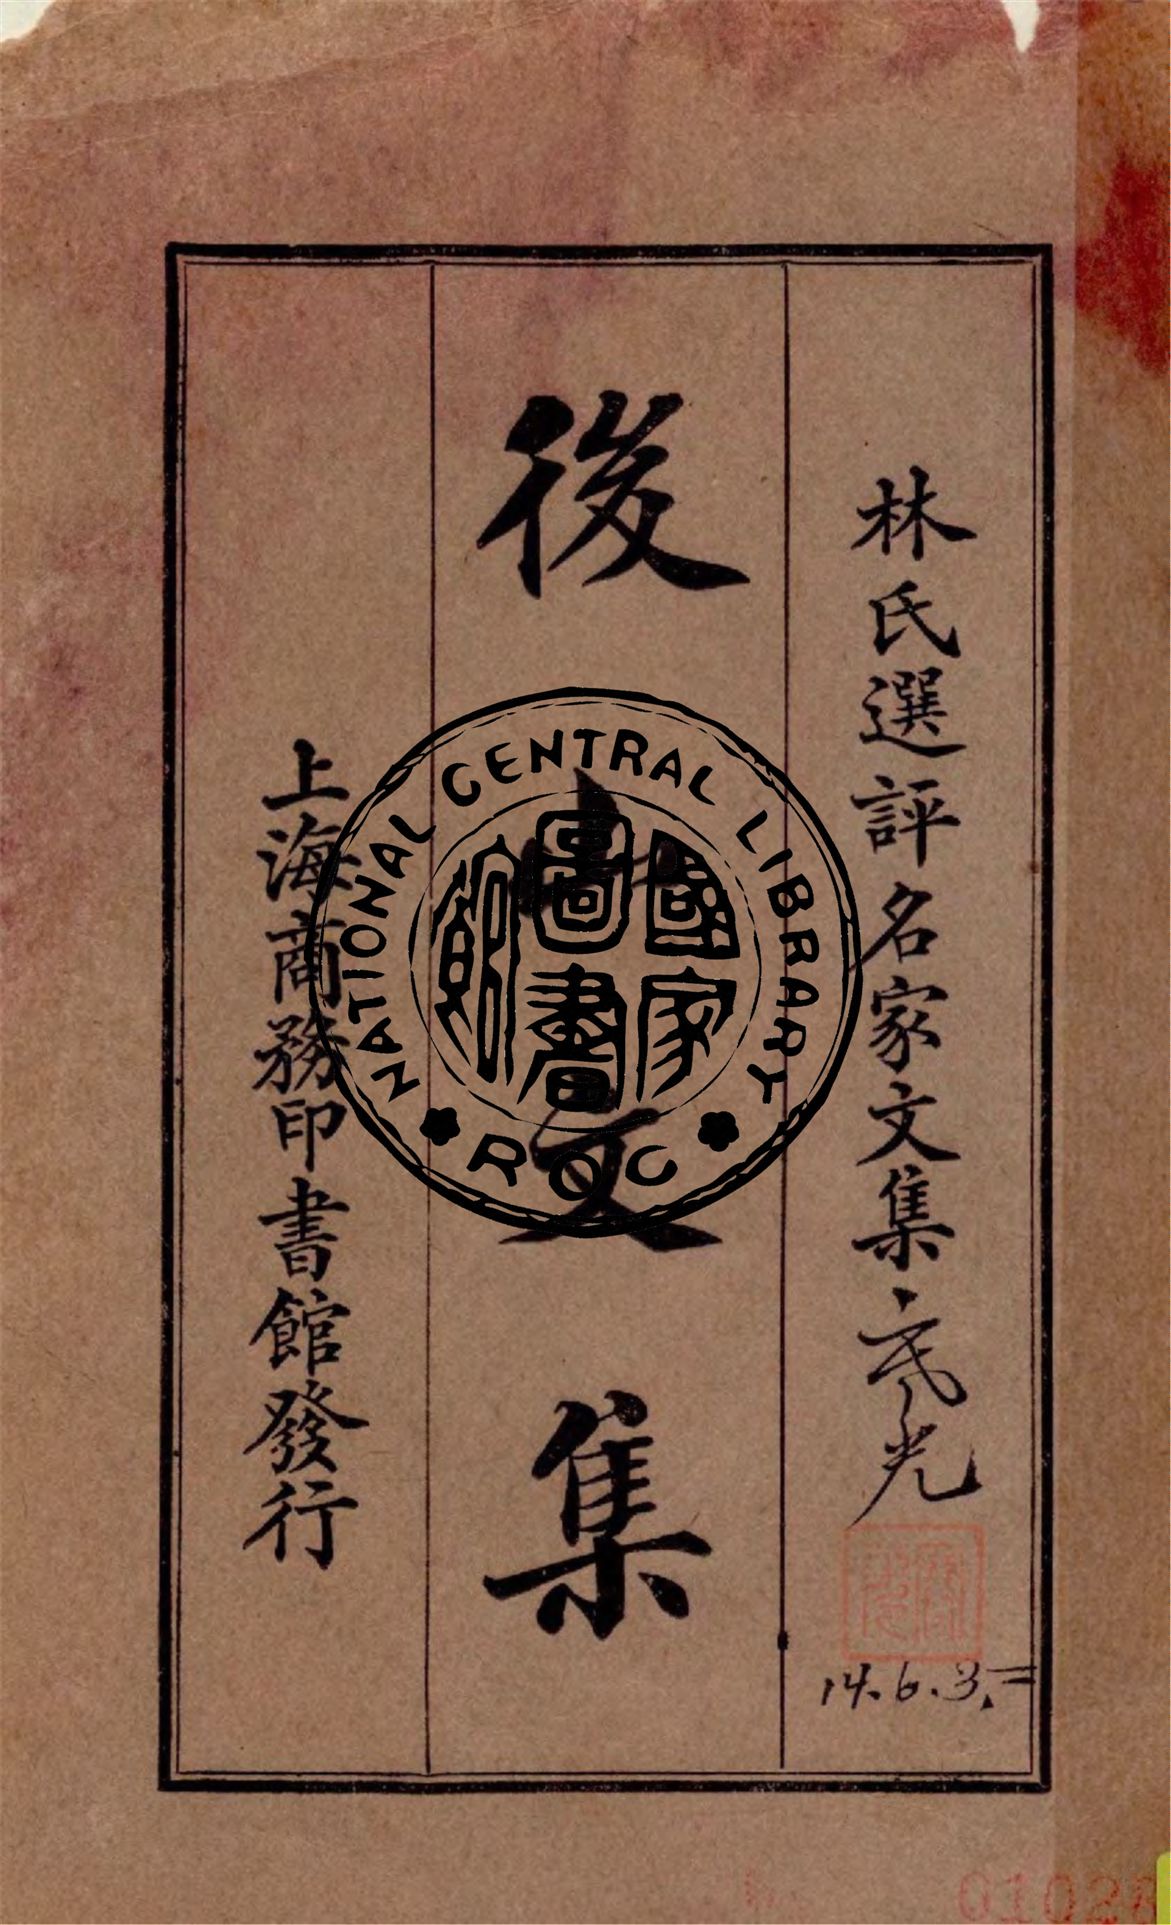 林氏選評名家文集
14.6.3.二
後山文集
上海商務印書館發行
NATIONAL CENTRAL LIBRARY
國家圖書館
ROC
01028